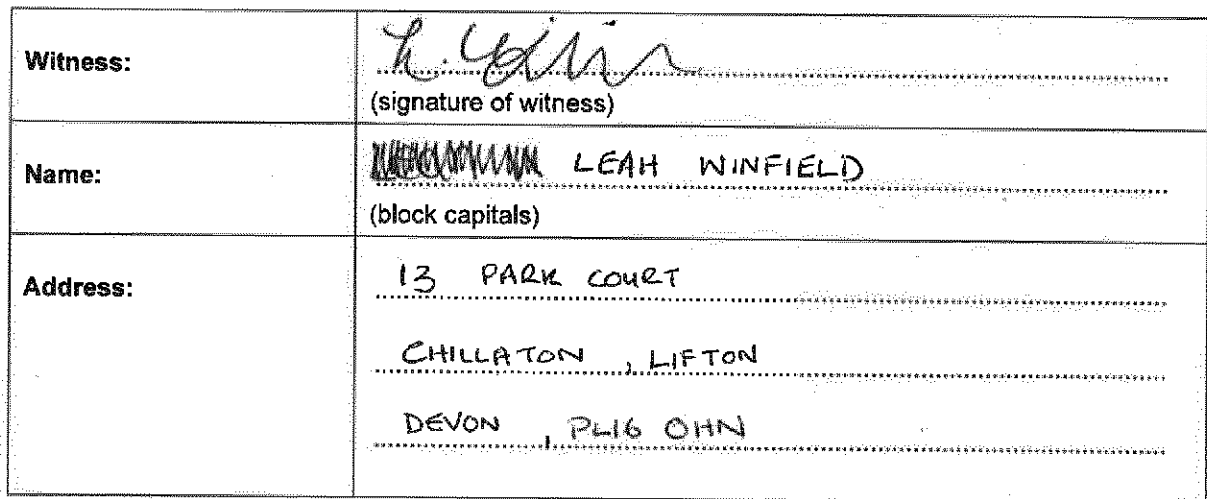 Witness:
(signature of witness)
Name: LEAH WINFIELD
(block capitals)
Address: 13 PARK COURT
CHILLATON , LIFTON
DEVON , PL16 0HN